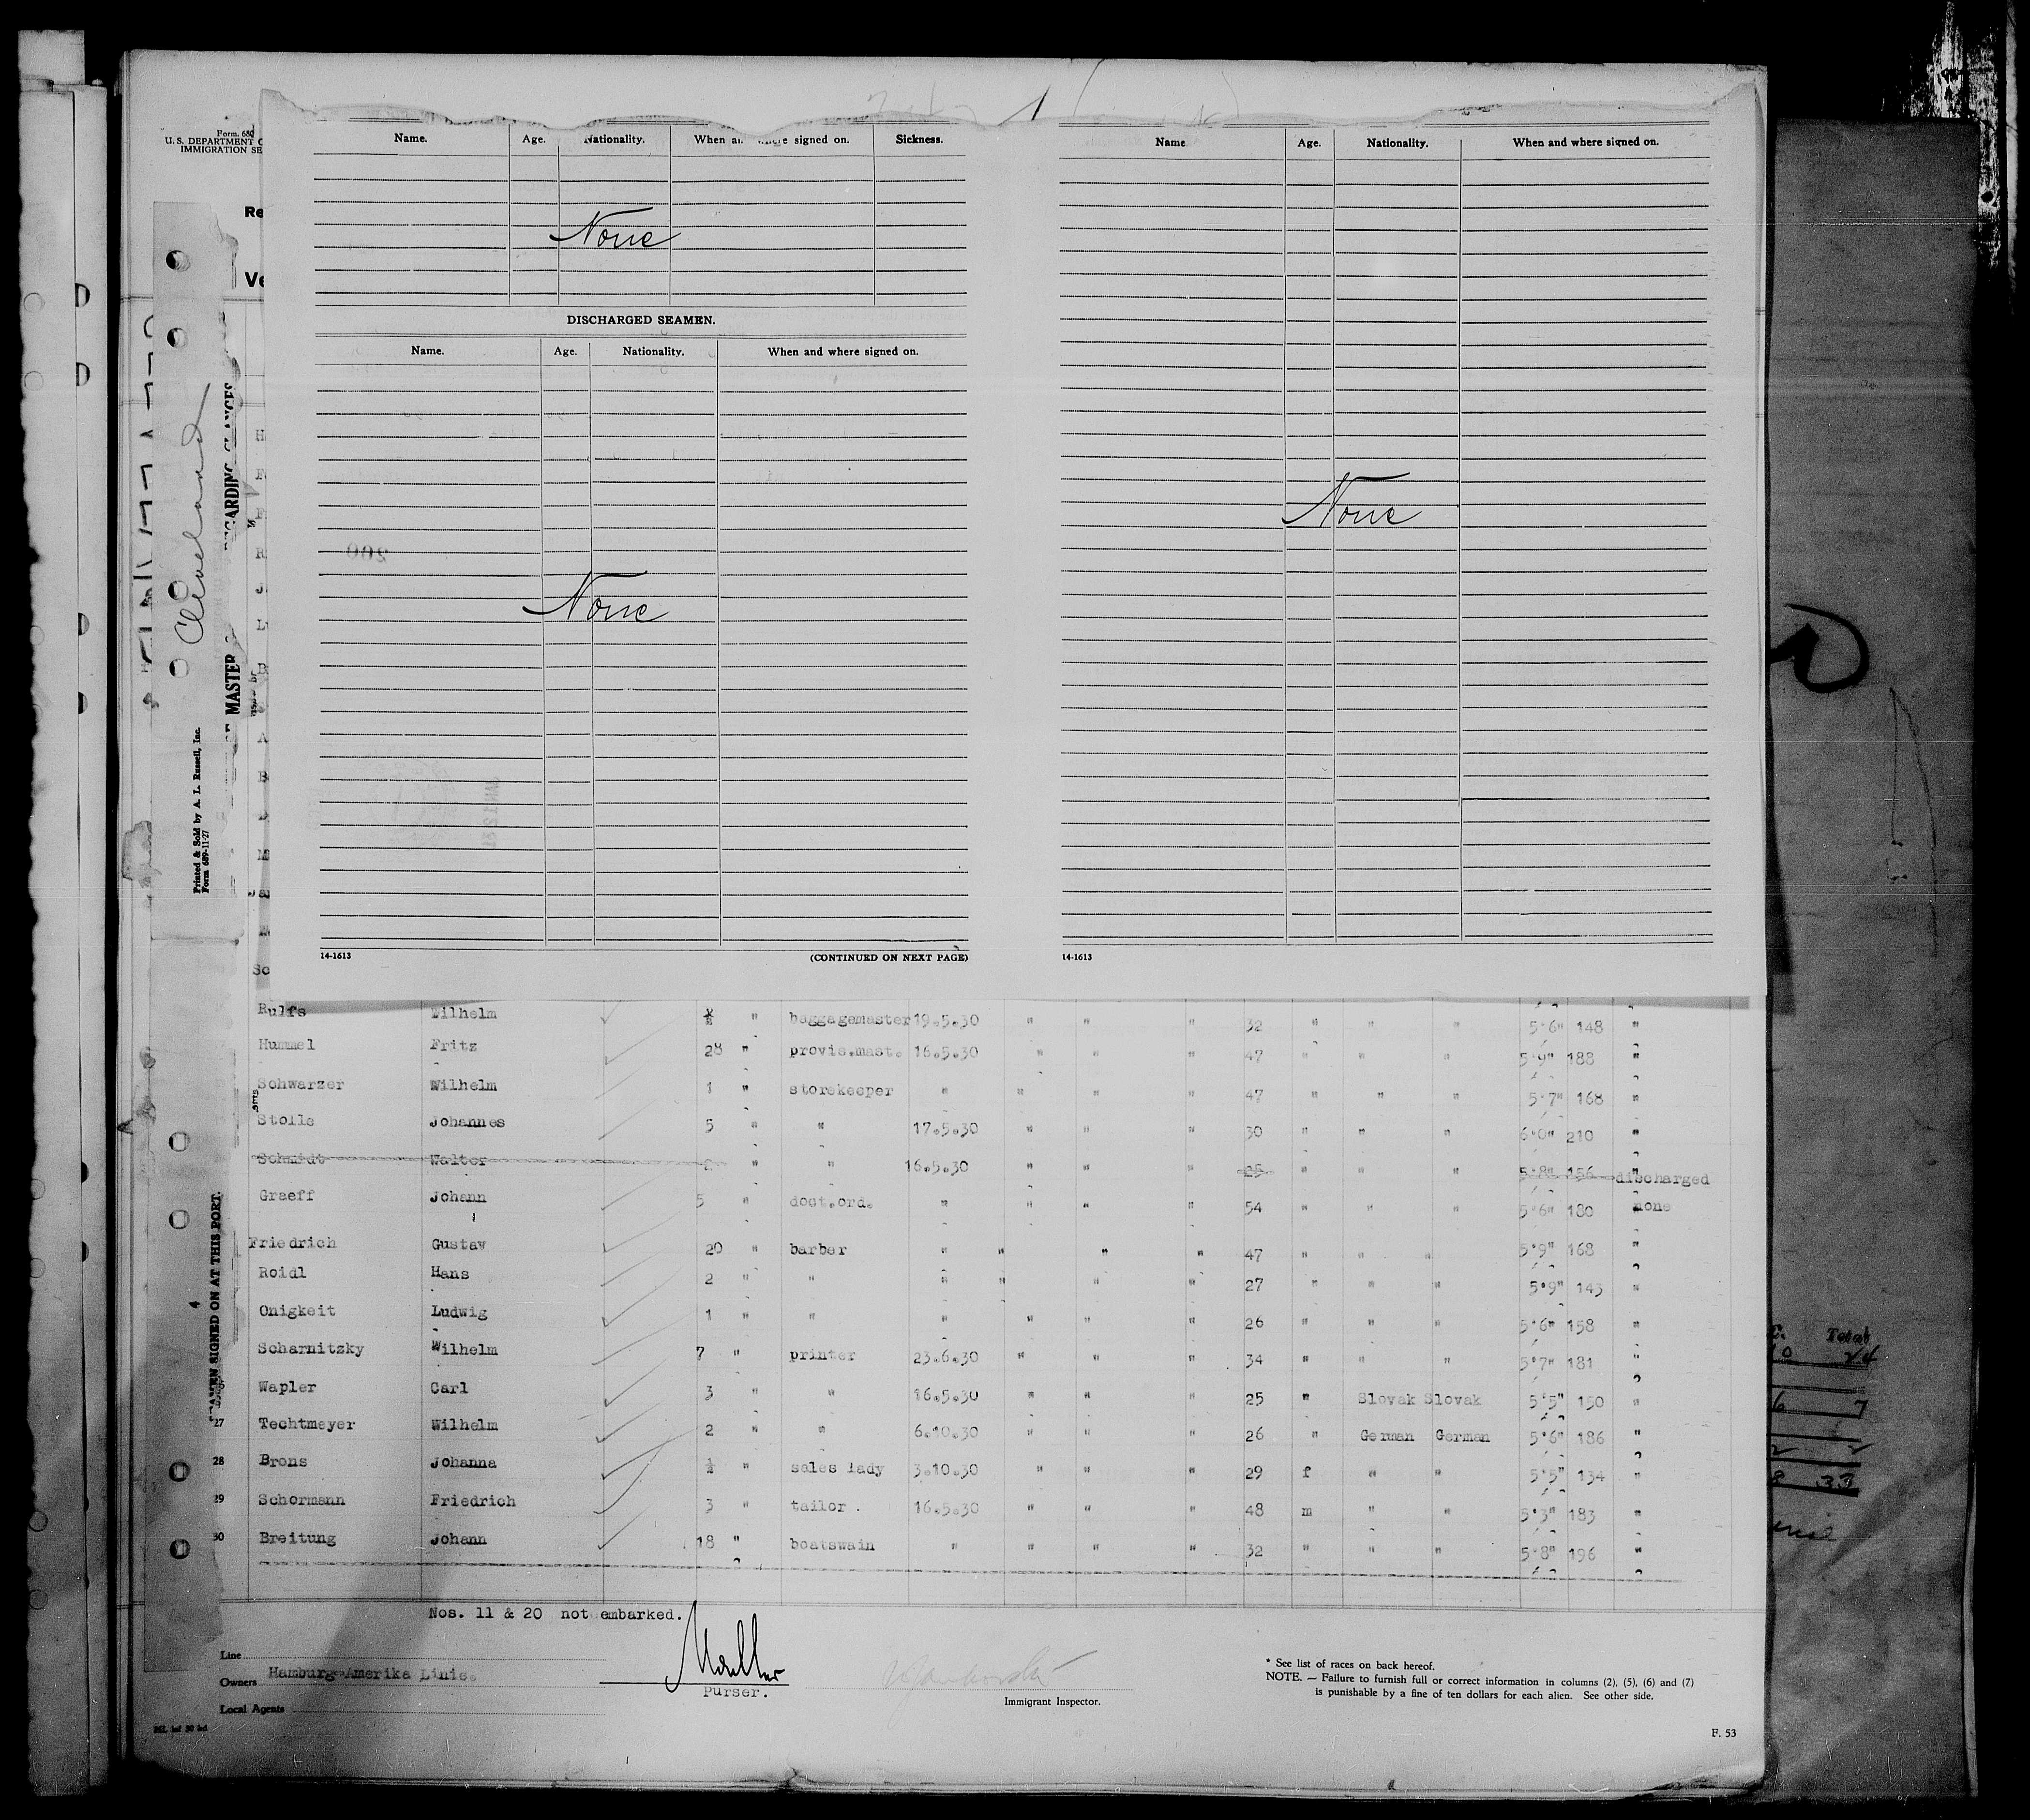 Form. 680
U.S. DEPARTMENT O
IMMIGRATION SE
Re
Ve
Name. Age. Nationality. When an where signed on. Sickness.
None
DISCHARGED SEAMEN.
Name. Age. Nationality. When and where signed on.
200
None
14-1613 (CONTINUED ON NEXT PAGE)
Name Age. Nationality. When and where signed on.
None
14-1613
Cleveland
Printed & Sold by A. L. Russell, Inc.
Form 689-11-27
MASTER
REGARDING CLANCES
SEAMEN SIGNED ON AT THIS PORT.
4
Sc
Rulfs Wilhelm ½ " baggagemaster 19.5.30 " " " 32 " " " 5'6" 148 "
Hummel Fritz 28 " provis.mast. 16.5.30 " " " 47 " " " 5'9" 188 "
Schwarzer Wilhelm 1 " storekeeper " " " " 47 " " " 5'7" 168 "
Stolls Johannes 5 " " 17.5.30 " " " 30 " " " 6'0" 210 "
Schmidt Walter " " 16.5.30 " " " 25 " " " 5'8" 156 discharged
Graeff Johann 5 " doct.ord. " " " " 54 " " " 5'6" 180 none
Friedrich Gustav 20 " barber " " " " 47 " " " 5'9" 168 "
Roidl Hans 2 " " " " " " 27 " " " 5'9" 143 "
Onigkeit Ludwig 1 " " " " " " 26 " " " 5'6" 158 "
Scharnitzky Wilhelm 7 " printer 23.6.30 " " " 34 " " " 5'7" 181 "
Wapler Carl 3 " " 16.5.30 " " " 25 " Slovak Slovak 5'5" 150 "
27 Techtmeyer Wilhelm 2 " " 6.10.30 " " " 26 " German German 5'6" 186 "
28 Brons Johanna ½ " sales lady 3.10.30 " " " 29 f " " 5'5" 134 "
29 Schormann Friedrich 3 " tailor. 16.5.30 " " " 48 m " " 5'3" 183 "
30 Breitung Johann 18 " boatswain " " " " 32 " " " 5'8" 196 "
Nos. 11 & 20 not embarked.
Line
Owners Hamburg-Amerika Linie.
Local Agents
Purser.
Immigrant Inspector.
* See list of races on back hereof.
NOTE. — Failure to furnish full or correct information in columns (2), (5), (6) and (7)
is punishable by a fine of ten dollars for each alien. See other side.
F. 53
Total
24
7
33